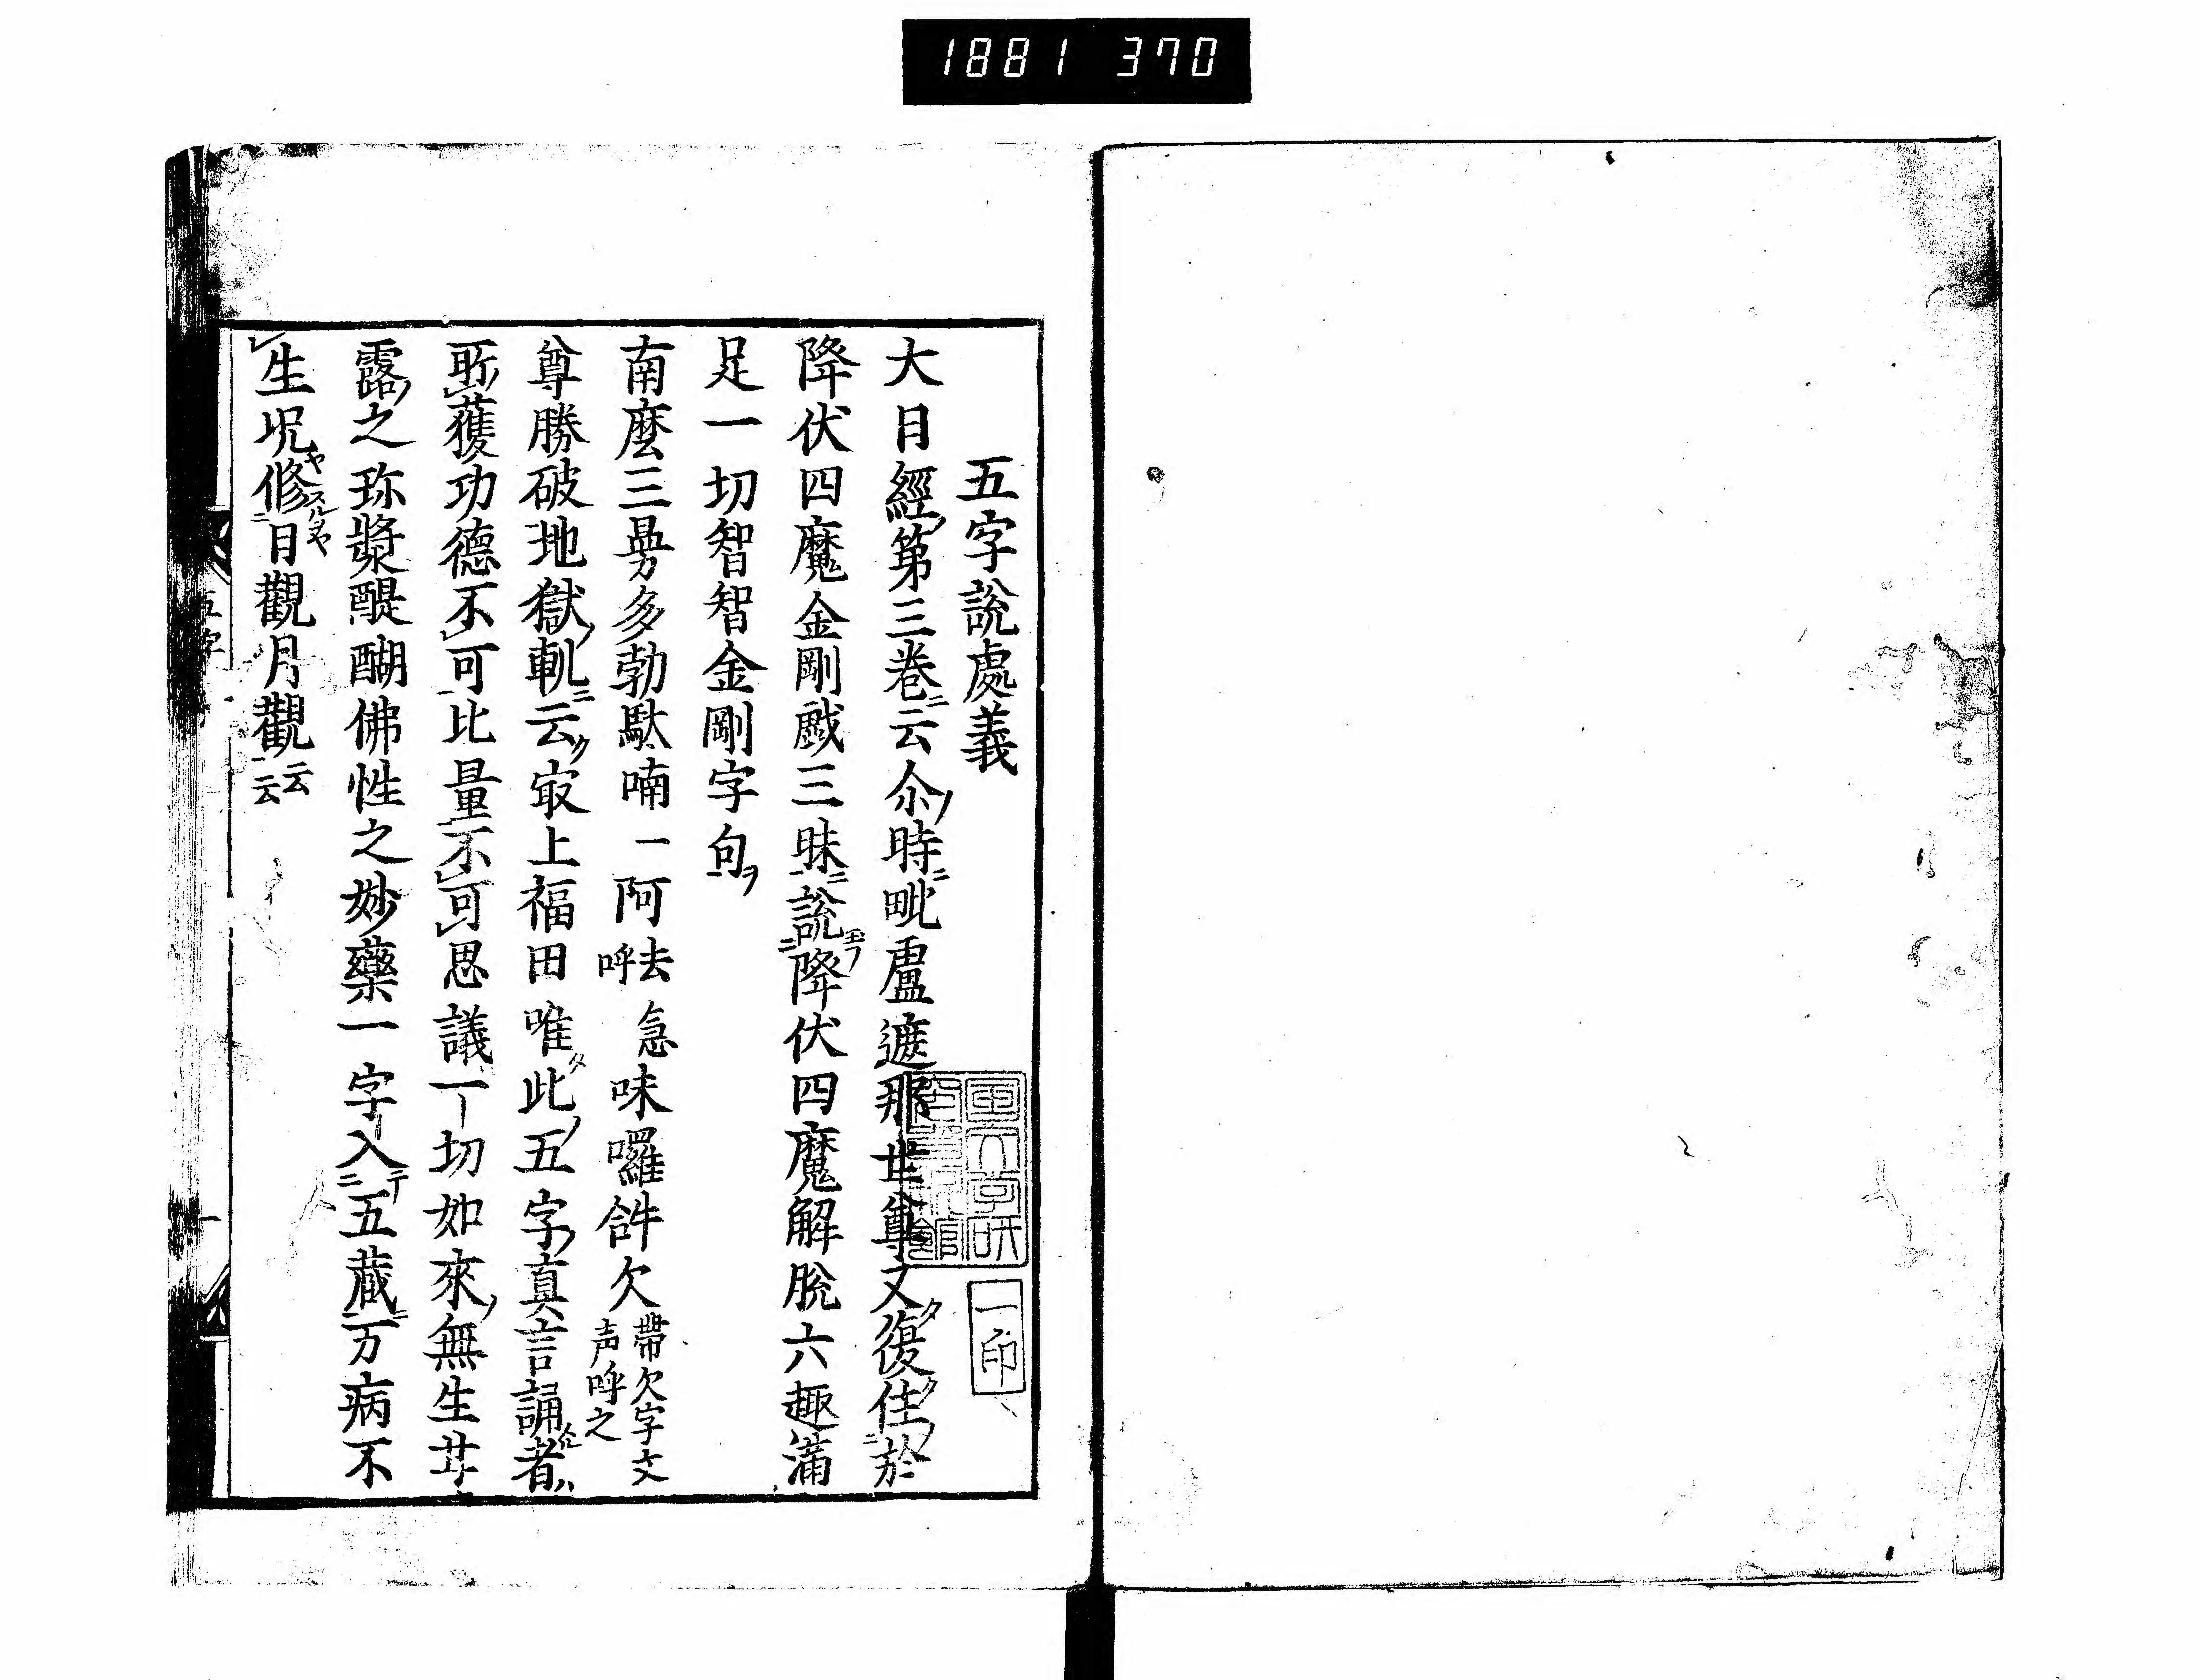 1881 370
五字說處義
大日經第三卷云尒時毗盧遮那世尊又復住於
降伏四魔金剛戯三昧說降伏四魔解脫六趣滿
足一切智智金剛字句
南麼三曼多勃馱喃一阿去急呼味囉𤙖欠帶欠字文声呼之
尊勝破地獄軌云㝡上福田唯此五字真言誦者
所獲功德不可比量不可思議一切如來無生芔
露之珎漿醍醐佛性之妙藥一字入五蔵万病不
生况修日觀月觀云云
一印
五字